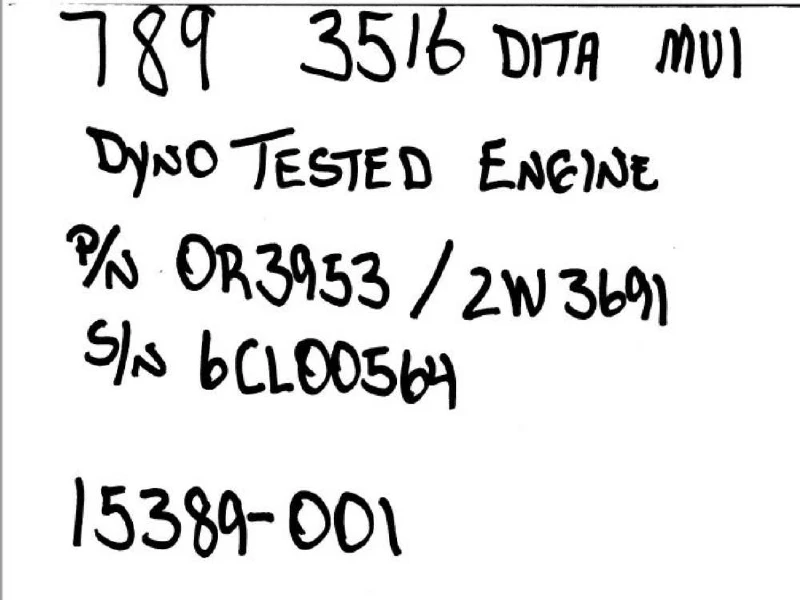 789 3516 DITA MUI
DYNO TESTED ENGINE
P/N 0R3953 / 2W3691
S/N 6CL00564
15389-001